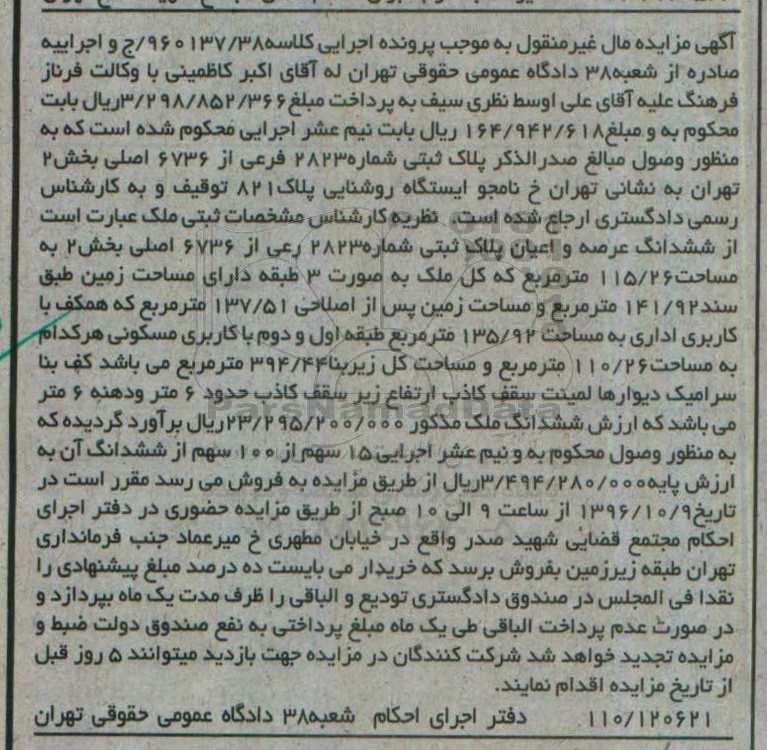 آگهی مزایده مال غیرمنقول به موجب پرونده اجرایی کلاسه۹۶۰۱۳۷/۳۸/ج و اجراییه
صادره از شعبه۳۸ دادگاه عمومی حقوقی تهران له آقای اکبر کاظمینی با وکالت فرناز
فرهنگ علیه آقای علی اوسط نظری سیف به پرداخت مبلغ۳/۲۹۸/۸۵۲/۳۶۶ریال بابت
محکوم به و مبلغ۱۶۴/۹۴۲/۶۱۸ ریال بابت نیم عشر اجرایی محکوم شده است که به
منظور وصول مبالغ صدرالذکر پلاک ثبتی شماره۲۸۲۳ فرعی از ۶۷۳۶ اصلی بخش۲
تهران به نشانی تهران خ نامجو ایستگاه روشنایی پلاک۸۲۱ توقیف و به کارشناس
رسمی دادگستری ارجاع شده است. نظریه کارشناس مشخصات ثبتی ملک عبارت است
از ششدانگ عرصه و اعیان پلاک ثبتی شماره۲۸۲۳ رعی از ۶۷۳۶ اصلی بخش۲ به
مساحت۱۱۵/۲۶ مترمربع که کل ملک به صورت ۳ طبقه دارای مساحت زمین طبق
سند۱۴۱/۹۲ مترمربع و مساحت زمین پس از اصلاحی ۱۳۷/۵۱ مترمربع که همکف با
کاربری اداری به مساحت ۱۳۵/۹۲ مترمربع طبقه اول و دوم با کاربری مسکونی هرکدام
به مساحت۱۱۰/۲۶ مترمربع و مساحت کل زیربنا۳۹۴/۴۴ مترمربع می باشد کف بنا
سرامیک دیوارها لمینت سقف کاذب ارتفاع زیر سقف کاذب حدود ۶ متر ودهنه ۶ متر
می باشد که ارزش ششدانگ ملک مذکور ۲۳/۲۹۵/۲۰۰/۰۰۰ریال برآورد گردیده که
به منظور وصول محکوم به و نیم عشر اجرایی ۱۵ سهم از ۱۰۰ سهم از ششدانگ آن به
ارزش پایه۳/۴۹۴/۲۸۰/۰۰۰ریال از طریق مزایده به فروش می رسد مقرر است در
تاریخ۱۳۹۶/۱۰/۹ از ساعت ۹ الی ۱۰ صبح از طریق مزایده حضوری در دفتر اجرای
احکام مجتمع قضایی شهید صدر واقع در خیابان مطهری خ میرعماد جنب فرمانداری
تهران طبقه زیرزمین بفروش برسد که خریدار می بایست ده درصد مبلغ پیشنهادی را
نقدا فی المجلس در صندوق دادگستری تودیع و الباقی را ظرف مدت یک ماه بپردازد و
در صورت عدم پرداخت الباقی طی یک ماه مبلغ پرداختی به نفع صندوق دولت ضبط و
مزایده تجدید خواهد شد شرکت کنندگان در مزایده جهت بازدید میتوانند ۵ روز قبل
از تاریخ مزایده اقدام نمایند.
۱۱۰/۱۲۰۶۲۱ دفتر اجرای احکام شعبه۳۸ دادگاه عمومی حقوقی تهران
ParsNamadData